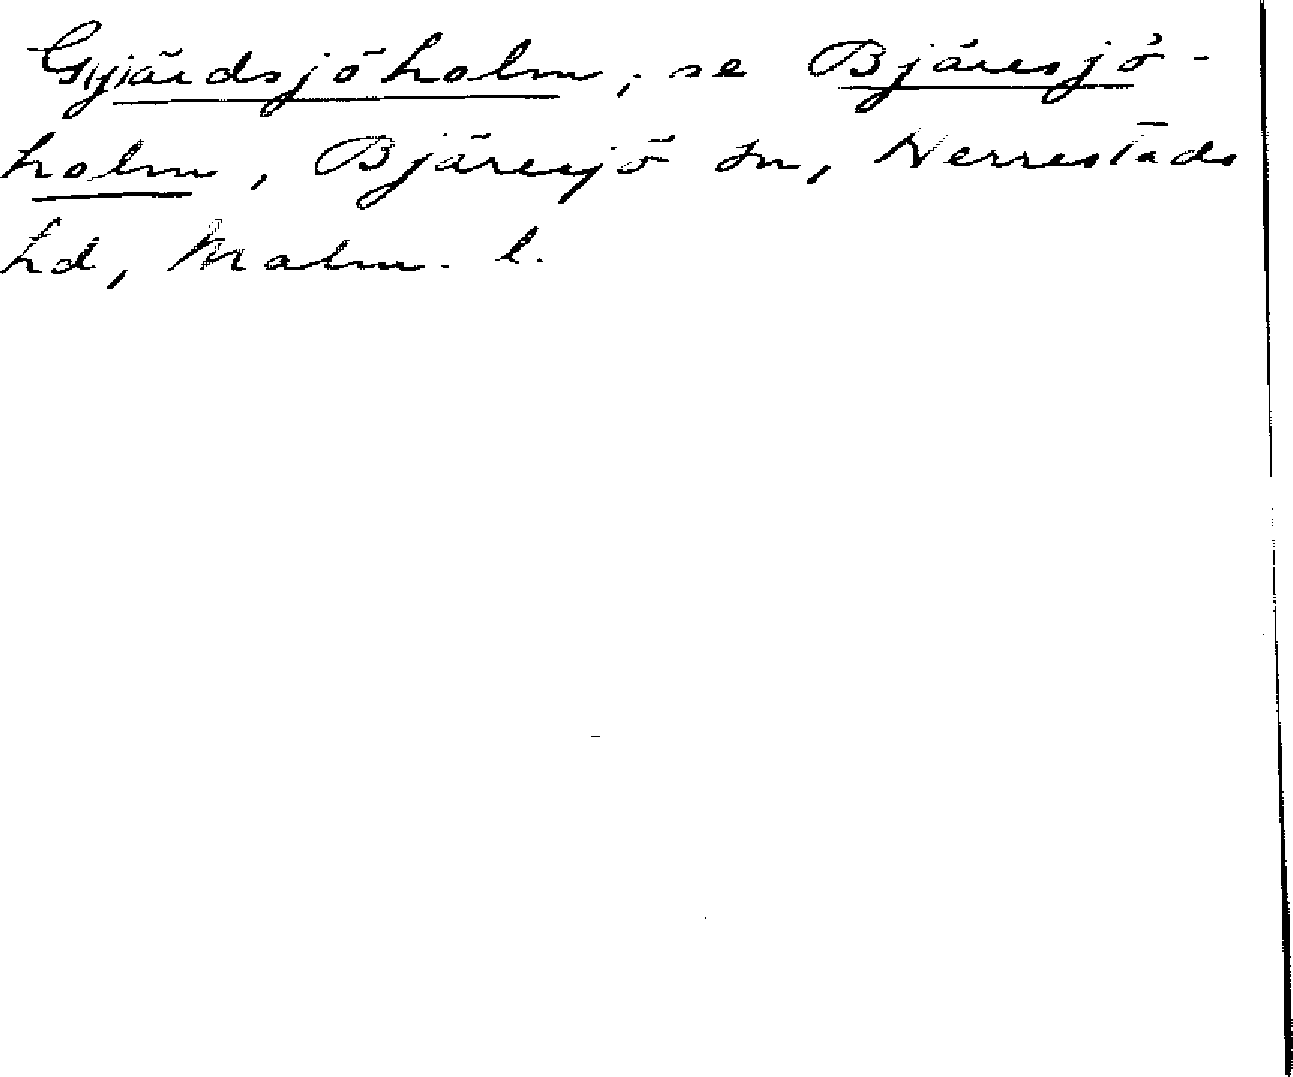 Gyjärdsjöholm, se Bjäresjö-
holm, Bjäresjö sn, Herrestads
hd, Malm. l.